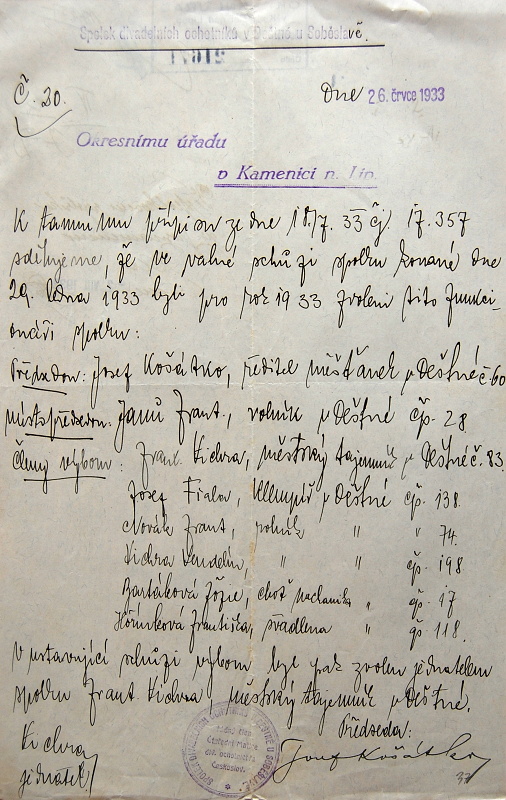 Spolek divadelních ochotníků v Deštné u Soběslavě.
21671
Č. 20.
Dne 26. črvce 1933
Okresnímu úřadu
v Kamenici n. Lip.
K tamnímu přípisu ze dne 18/7. 33 čj. 17.357
sdělujeme, že ve valné schůzi spolku konané dne
29. ledna 1933 byli pro rok 1933 zvoleni tito funkci-
onáři spolku:
Předseda: Josef Košátko, ředitel měšťanek v Deštné č. 60
místopředseda: Janů Frant., rolník v Deštné čp. 28.
Členy výboru: Frant. Vichra, městský tajemník v Deštné č. 83.
Josef Fiala, klempíř v Deštné čp. 138.
Novák Frant, rolník " " 74.
Vichra Vendelín, " " čp. 198
Bartáková Žofie, choť " čp. 17
Františka, švadlena " čp 118.
V ustavující schůzi výboru byl pak zvolen jednatelem
spolku Frant. Vichra městský tajemník v Deštné.
Předseda:
Vichra Josef Košátko
jednatel
37